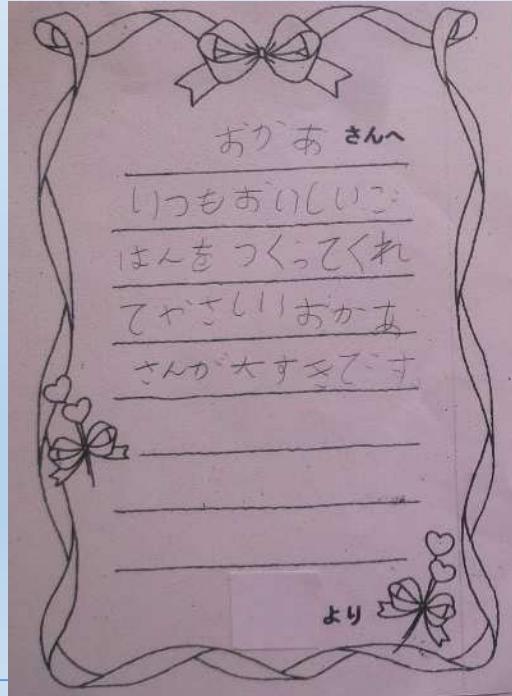 おかあ さんへ
いつもおいしいご
はんを つくってくれ
てやさしいおかあ
さんが大すきです
より